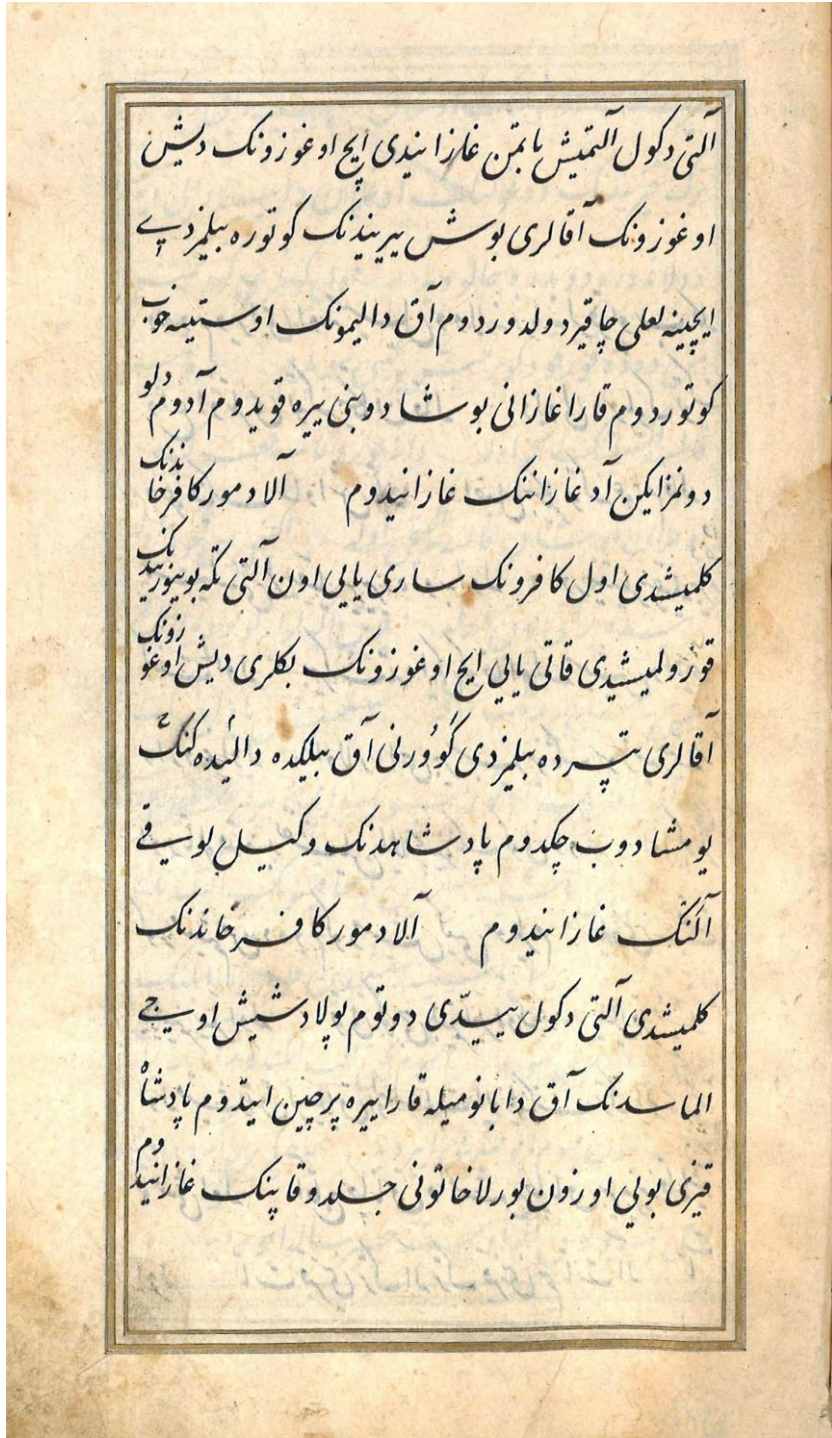 آلتی دکول آلتمیش باتمن غازانیدی ایچ اوغوزونک دیش
اوغوزونک آقالری بوش ییریندنک کوتوره بیلمزدی
ایچینه لعلی چاقیر دولدوردوم آق دالیمونک اوستینه خوب
کوتوردوم قارا غازانی بوشادوبنی ییره قویدوم آدوم دلو
دونمز ایکن آد غازاننک غازانیدوم آلا دمور کافر خاندنک
کلمیشدی اول کافرونک ساری یایی اون آلتی تکه بوینوزیندنک
قورولمیشیدی قاتی یایی ایچ اوغوزونک بکلری دیش اوغوزونک
آقالری تپرده بیلمزدی گوورنی آق بیلکیده دالیده کنک
یومشادوب چکدوم پادشاهدنک وکیل لوقی
آلنک غازانیدوم آلا دمور کافر خاندنک
کلمیشدی آلتی دکول ییدّی دوتوم پولاد شیش اوجی
الماسدنک آق دابانومیله قارا ییره پرچین ایتدوم پادشاه
قیزی بولی اوزون بورلا خاتونی جلدوقاپنک غازانیدوم